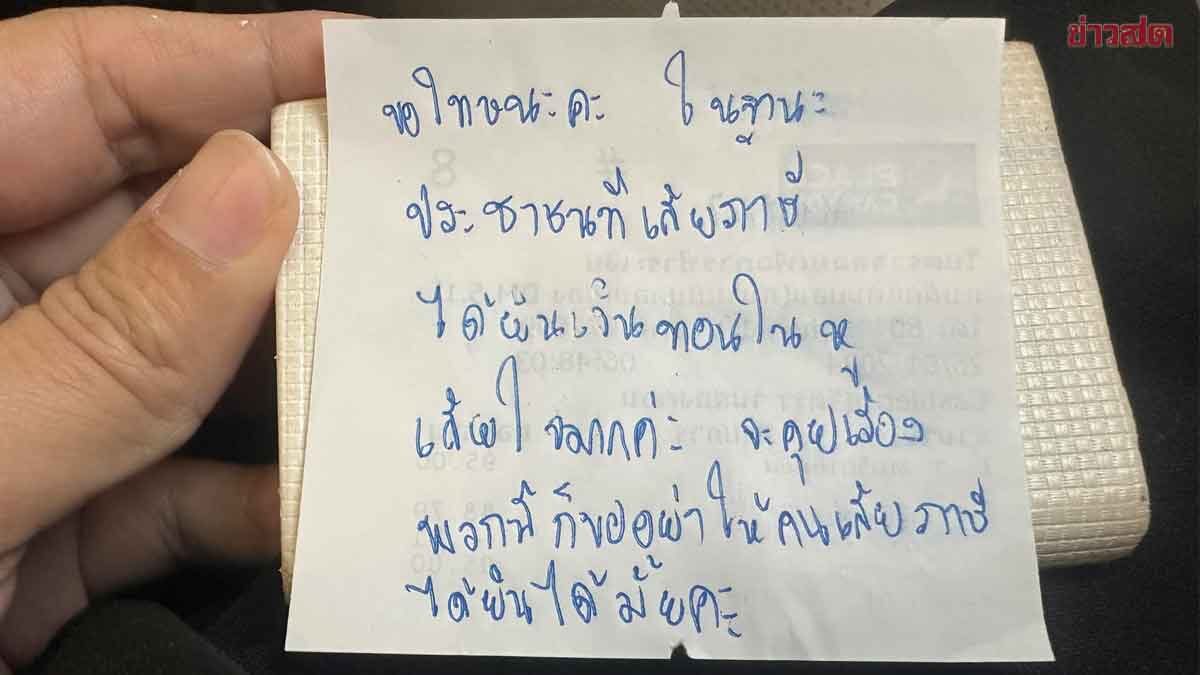 ข่าวสด
ขอโทษนะคะ ในฐานะ
ประชาชนที่เสียภาษี
ได้ยินเงินทอนในหู
เสียใจมากค่ะ จะคุยเรื่อง
พวกนี้ก็ขออย่าให้คนเสียภาษี
ได้ยินได้มั้ยคะ